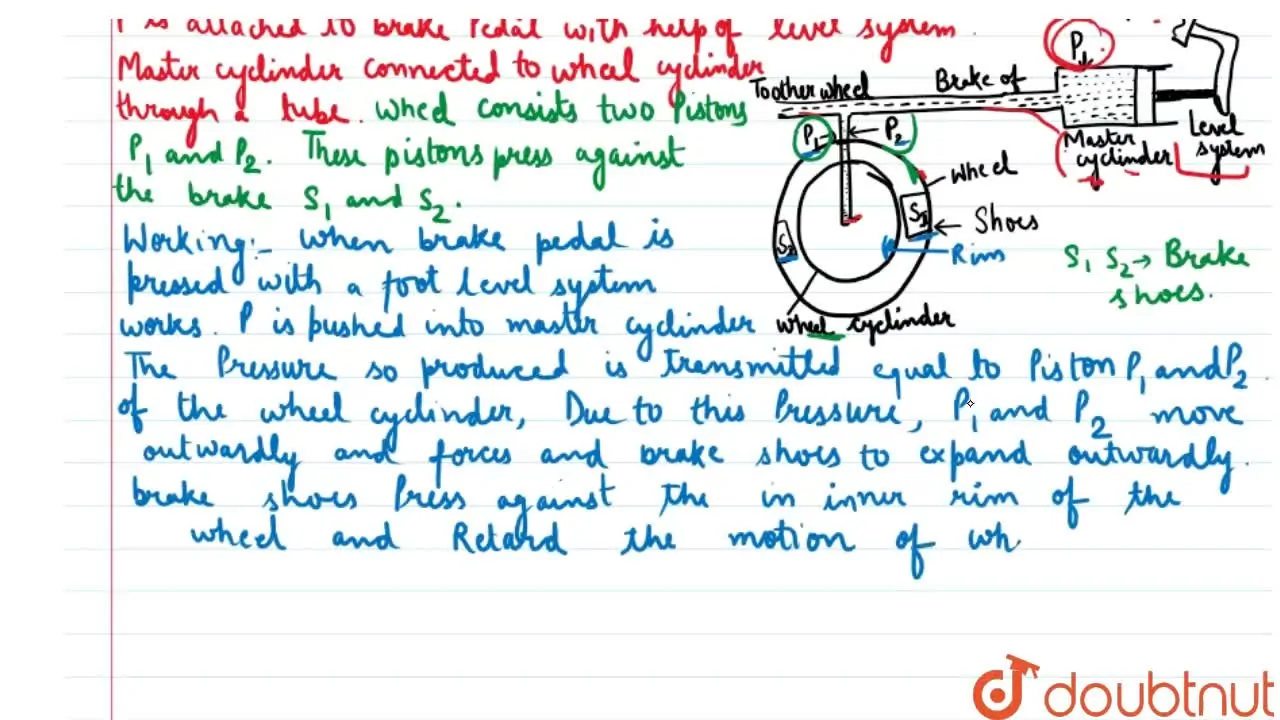 P is attached to brake Pedal with help of level system.
Master cyclinder connected to wheel cyclinder
through a tube. Wheel consists two Pistons
P1 and P2. These pistons press against
the brake S1 and S2.
Working:- When brake pedal is
pressed with a foot level system
works. P is pushed into master cyclinder
The Pressure so produced is transmitled equal to Piston P1 and P2.
of the wheel cyclinder, Due to this Pressure, P1 and P2 move
outwardly and forces and brake shoes to expand outwardly.
brake shoes Press against the in inner rim of the
wheel and Retard the motion of wh
P1
To other wheel
Brake of
P1
P2
Master
cyclinder
Level
system
Wheel
S1
Shoes
S2
Rim
wheel cyclinder
S1 S2 → Brake
shoes.
doubtnut